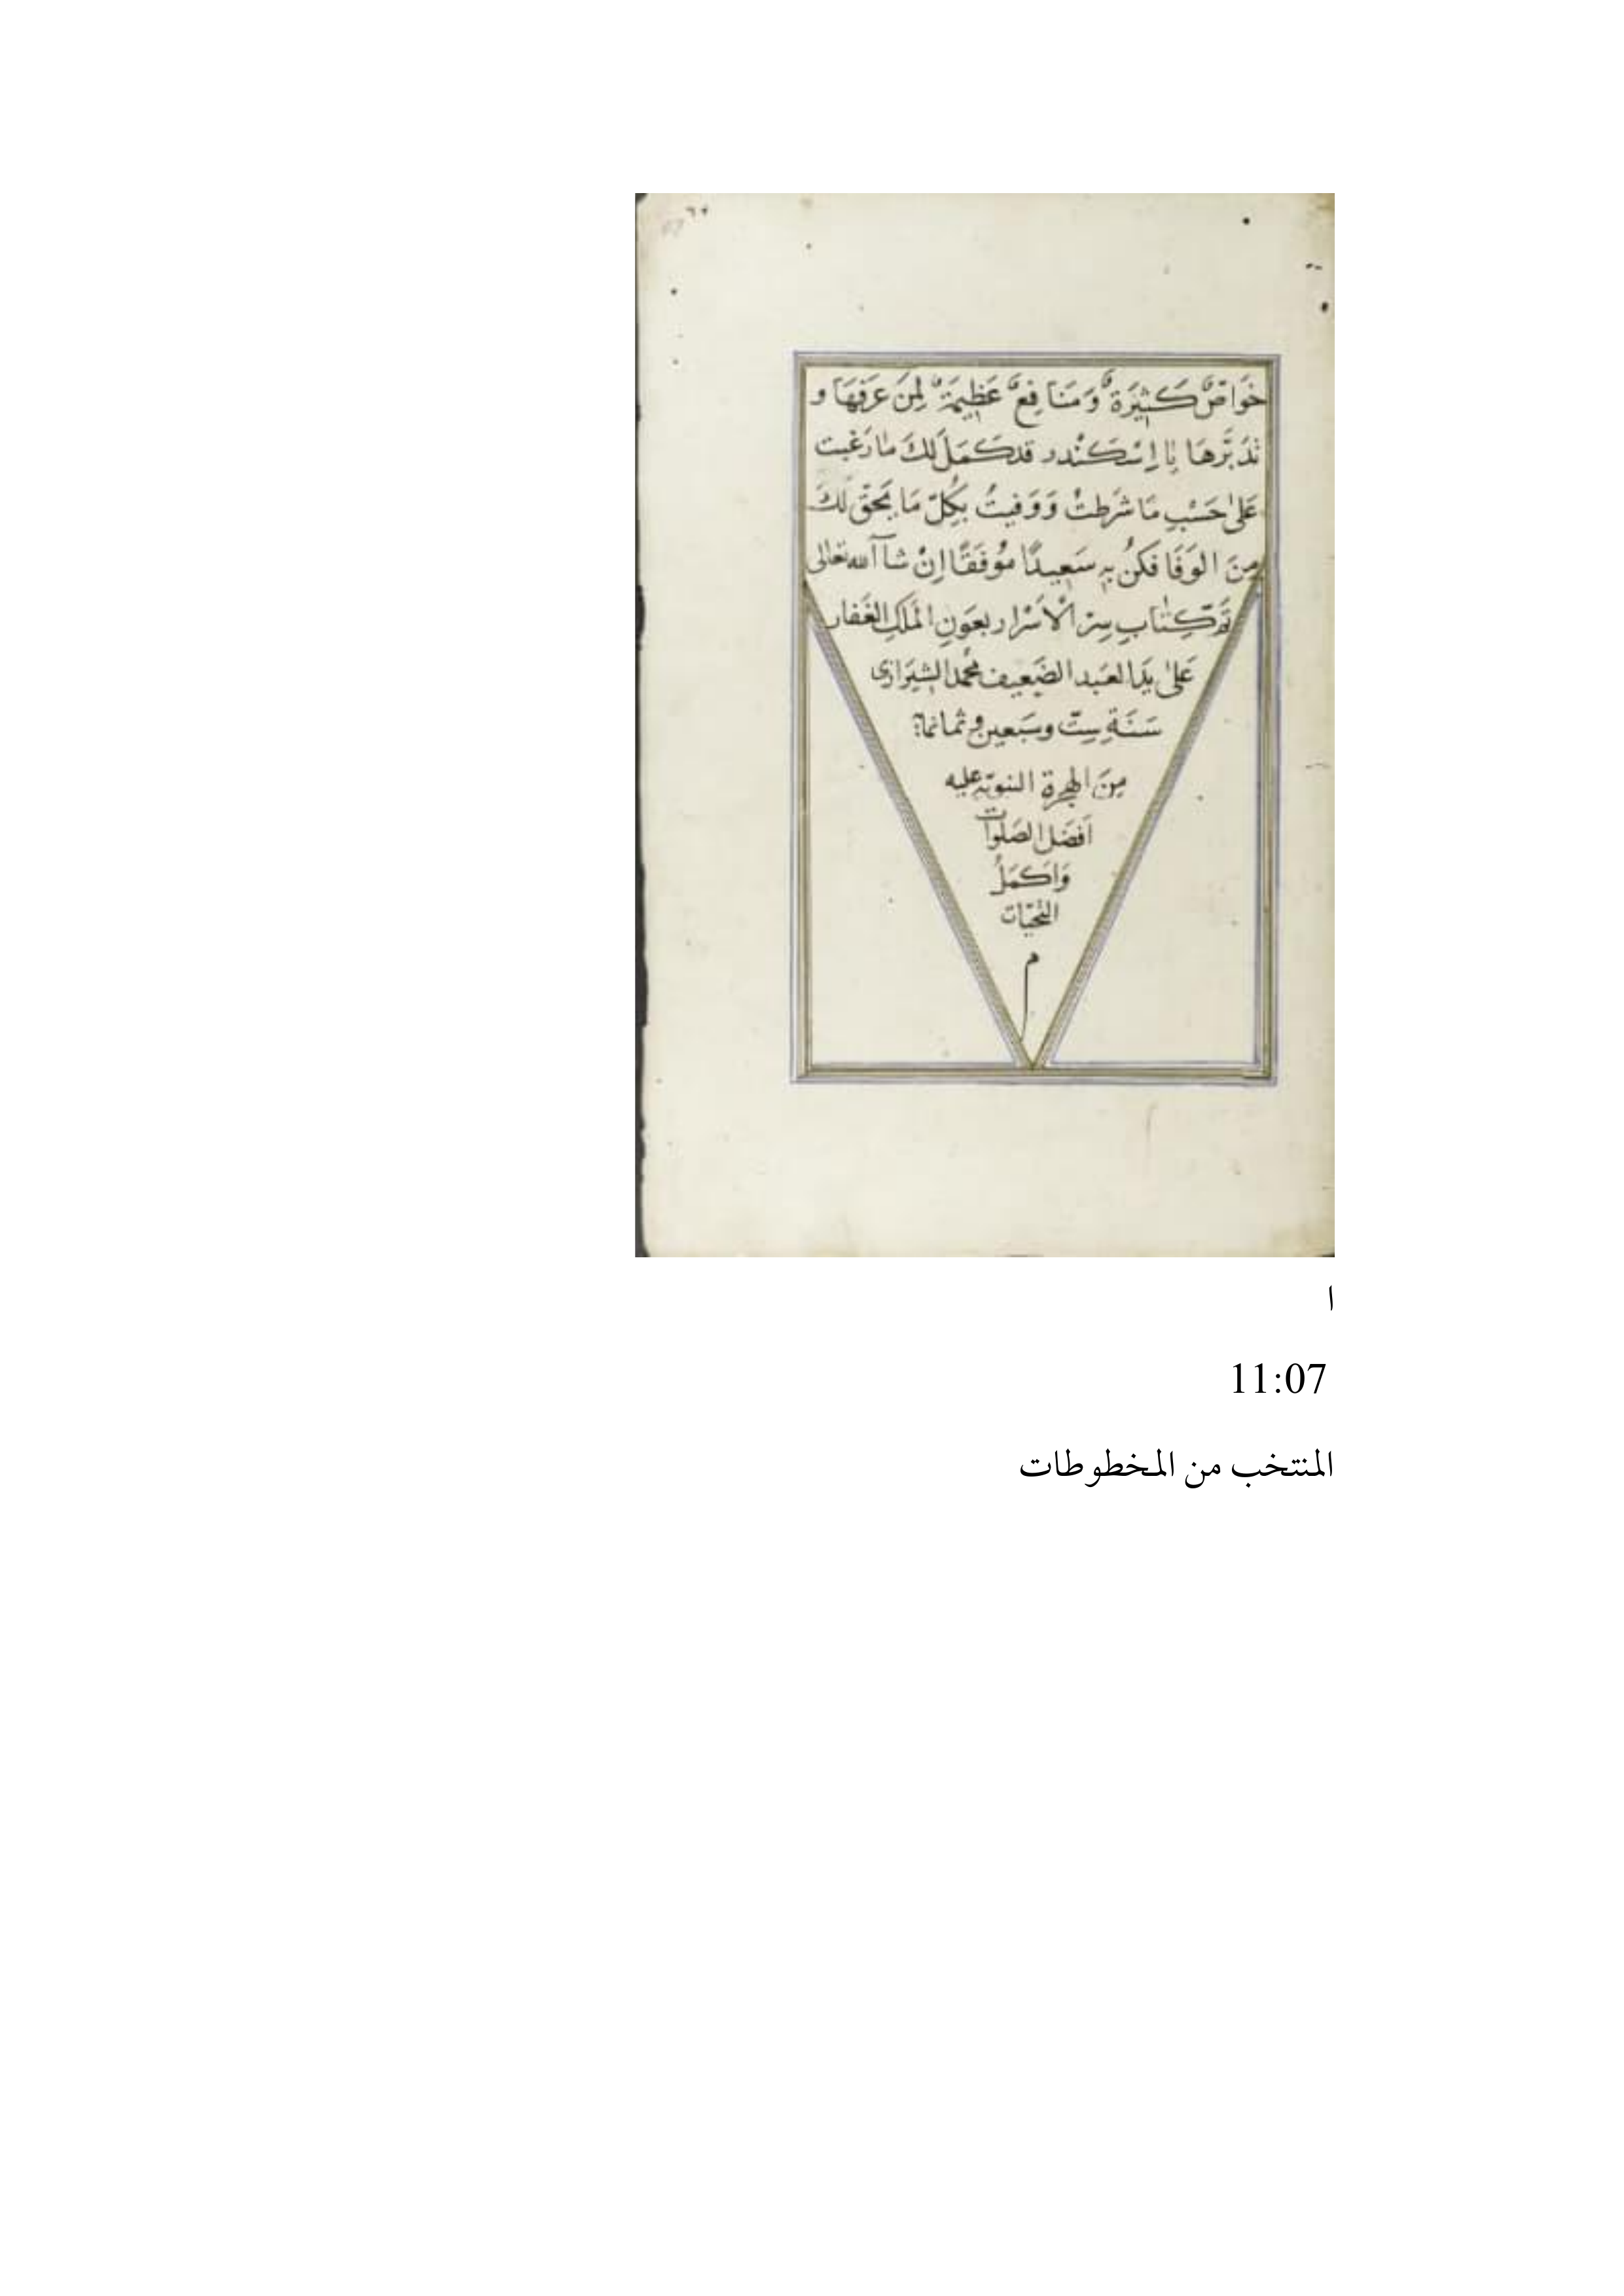 ٦٧
خَوَاصٌّ كَثِيرَةٌ وَمَنَافِعٌ عَظِيمَةٌ لِمَنَ عَرَفَهَا و
تَدَبَّرهَا يَا اِسْكَنْدر قدكَمَلَ لَكَ مَا رَغبت
عَلىٰ حَسْبِ مَا شَرَطتْ وَوَفيتُ بكُلّ مَا يَحقّ لَكَ
مِنَ الوَفَا فكنُ بِهِ سَعِيدًا مُوُفَقًا اِنْ شآ الله تعالى
تمّ كِتٰاب سِرّ الْاَسْرار بعَونِ المَلَكِ الغَفار
عَلىٰ يَدِ العَبد الضَعِيف محمد الشِيَرازى
سَنَةِ سِتّ وسَبعين وثمانمائة
مِنَ الهجرة النبويّة عليه
اَفضَل الصَلوات
وَاكَمَلُ
التحيّات
م
ا
11:07
المنتخب من المخطوطات